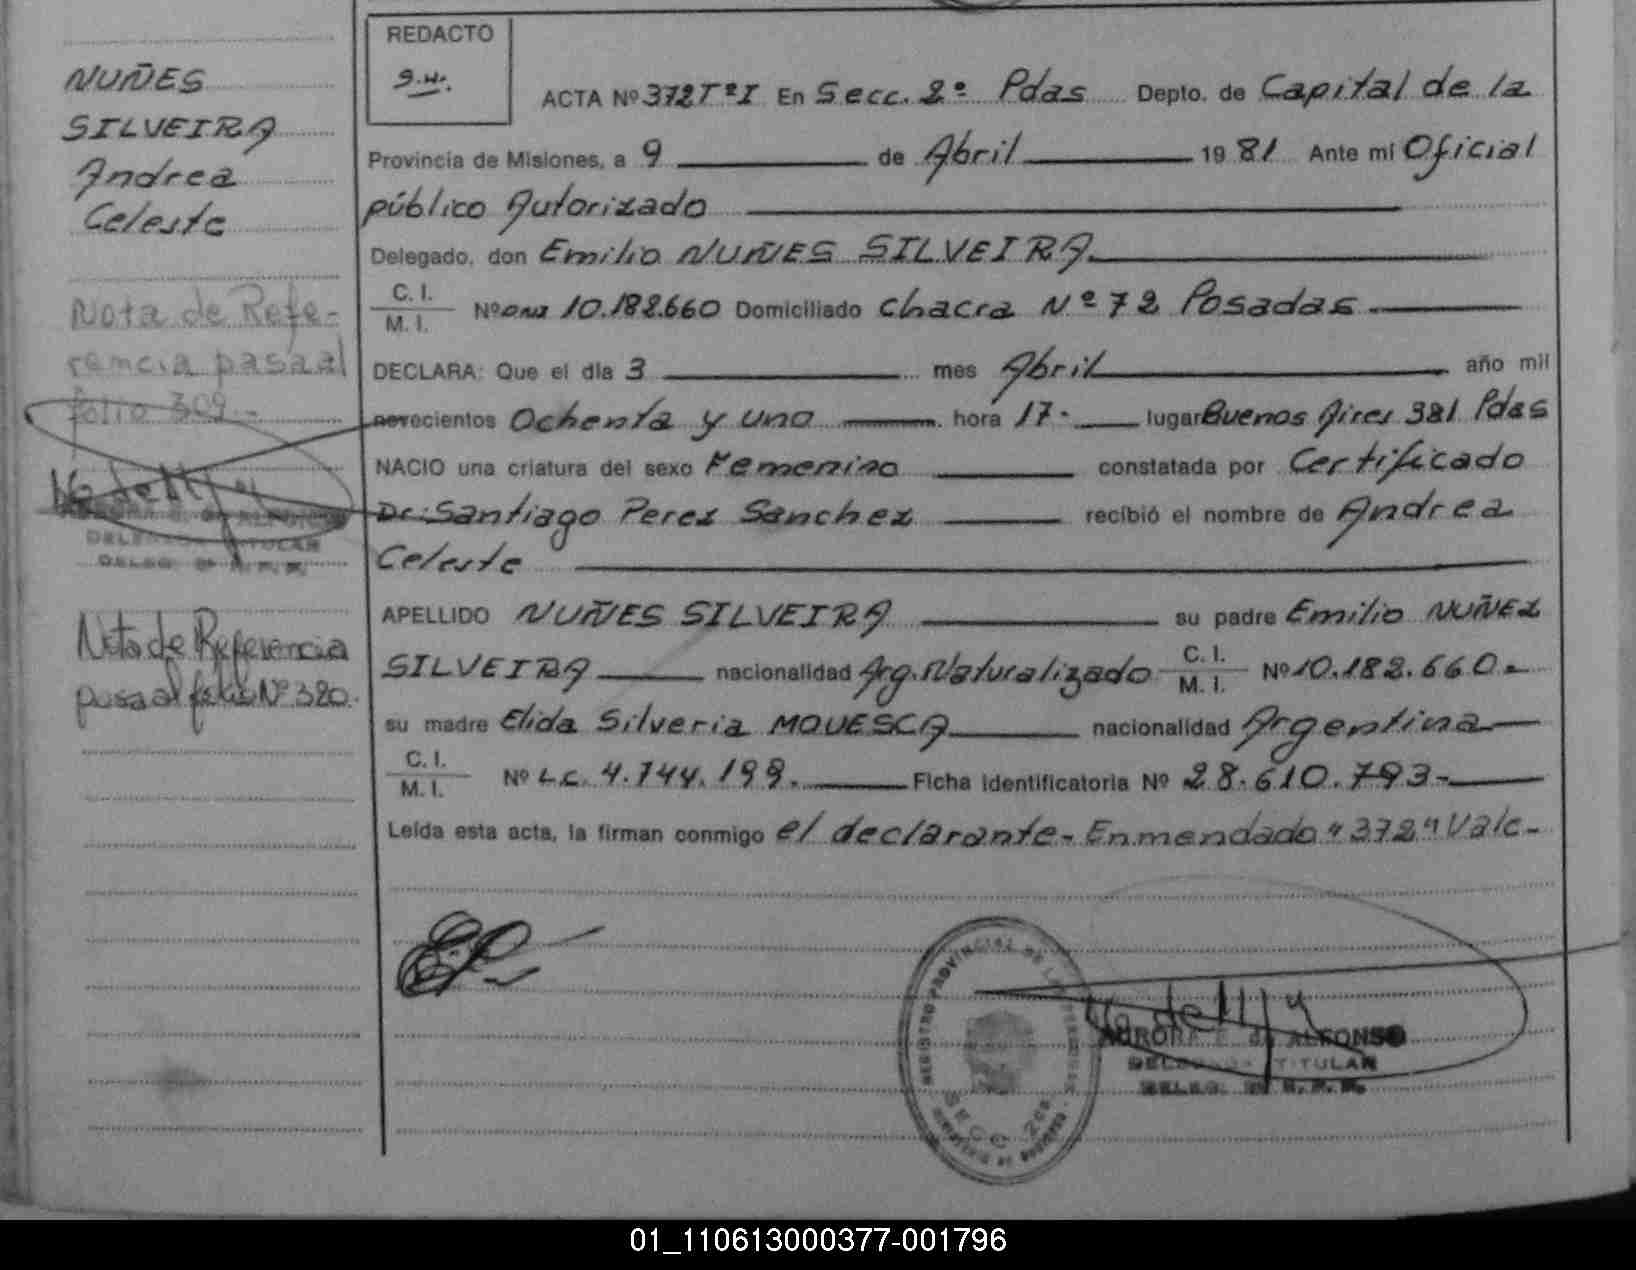 NUÑES
SILVEIRA
Andrea
Celeste
Nota de Refe-
rencia pasa al
folio 309.-
DELEGADA TITULAR
Nota de Referencia
pasa al folio Nº 320.
REDACTO
ACTA Nº 372 Tº I En Secc. 2º Pdas Depto. de Capital de la
Provincia de Misiones, a 9 de Abril 19 81 Ante mi Oficial
público Autorizado
Delegado, don Emilio NUÑES SILVEIRA
C. I.
M. I. Nº DNI 10.182.660 Domiciliado Chacra Nº 72 Posadas.
DECLARA: Que el día 3 mes Abril año mil
novecientos Ochenta y uno hora 17.- lugar Buenos Aires 381 Pdas
NACIO una criatura del sexo Femenino constatada por Certificado
Dr: Santiago Perez Sanchez recibió el nombre de Andrea
Celeste
APELLIDO NUÑES SILVEIRA su padre Emilio NUÑEZ
SILVEIRA nacionalidad Arg. Naturalizado C. I.
M. I. Nº 10.182.660.-
su madre Elida Silveria MOUESCA nacionalidad Argentina
C. I.
M. I. Nº L.C. 4.744.199. Ficha Identificatoria Nº 28.610.793-
Leída esta acta, la firman conmigo el declarante.- Enmendado "372" Vale-
REGISTRO PROVINCIAL DE LAS PERSONAS
SECC. 2da
AURORA E. de ALFONSO
DELEGADA TITULAR
01_110613000377-001796